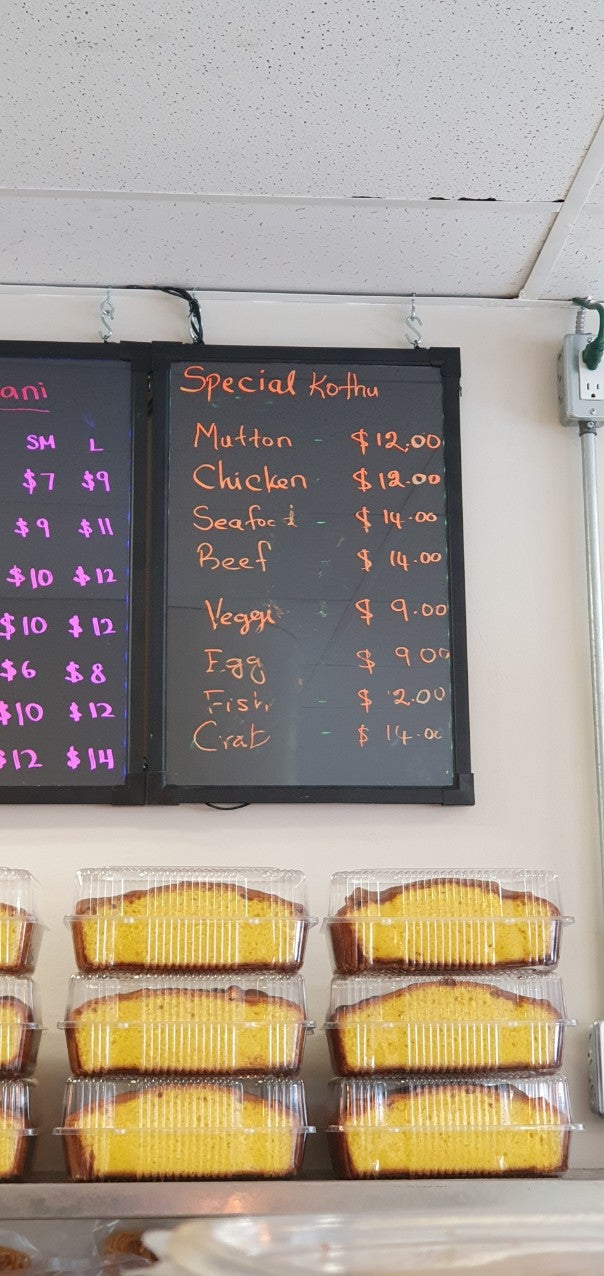 ani
SM L
$7 $9
$9 $11
$10 $12
$10 $12
$6 $8
$10 $12
$12 $14
Special Kothu
Mutton - $12.00
Chicken - $12.00
Seafood - $14.00
Beef $14.00
Veggi - $9.00
Egg - $9.00
Fish - $ 2.00
Crab - $14.00